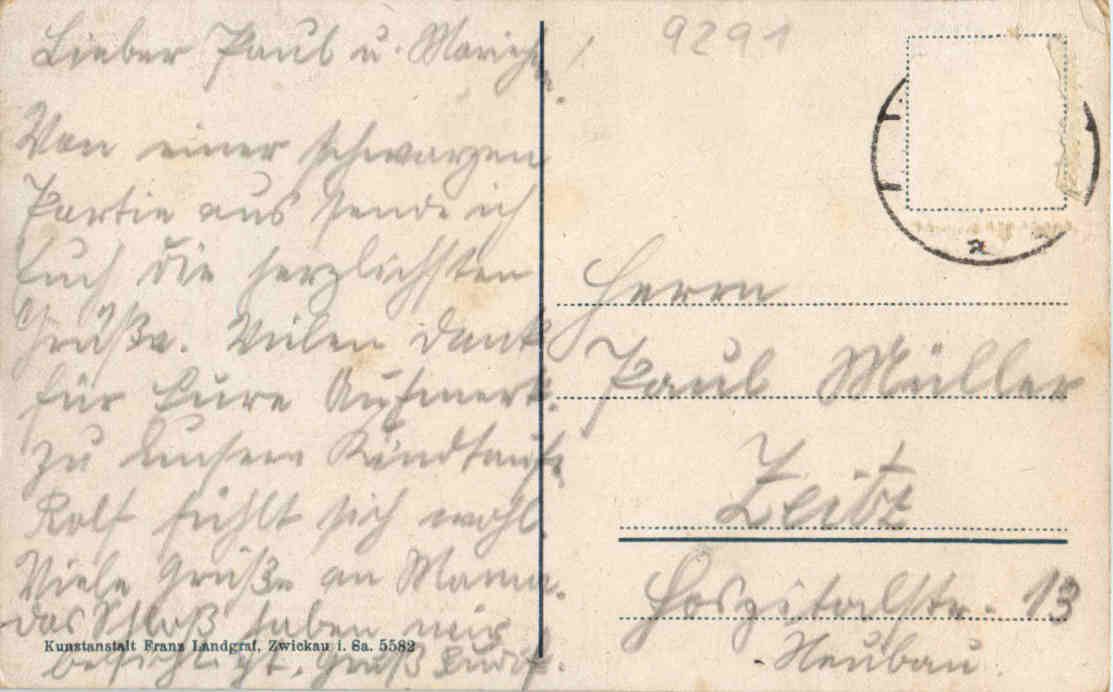 Lieber Paul u. Mariechen.
Von einer schwarzen
Partie aus sende ich
Euch die herzlichsten
Grüße. Vielen Dank
für Eure Aufmerk.
zu Unsern Kindtaufe
Rolf fühlt sich wohl.
Viele Grüße an Mama.
das Schloß haben wir
besichtigt. Gruß
Kunstanstalt Franz Landgraf, Zwickau i. Sa. 5582
9291
Herrn
Paul Müller
Zeitz
Hospitalstr. 13
Neubau